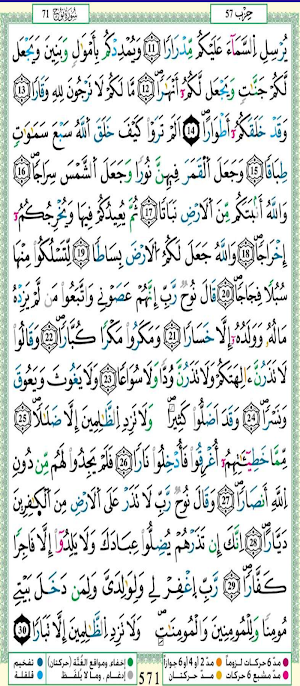 حزب 57 سورة نوح 71
يُرْسِلِ اِ۬لسَّمَآءَ عَلَيْكُم مِّدْرَاراٗ 11 وَيُمْدِدْكُم بِأَمْوَٰلٖ وَبَنِينَ وَيَجْعَل
لَّكُمْ جَنَّٰتٖ وَيَجْعَل لَّكُمُۥٓ أَنْهَٰراٗ 12 مَّا لَكُمْ لَا تَرْجُونَ لِلهِ وَقَاراٗ 13
وَقَدْ خَلَقَكُمُۥٓ أَطْوَاراً 14 اَلَمْ تَرَوْاْ كَيْفَ خَلَقَ اَ۬للَّهُ سَبْعَ سَمَٰوَٰتٖ
طِبَاقاٗ 15 وَجَعَلَ اَ۬لْقَمَرَ فِيهِنَّ نُوراٗ وَجَعَلَ اَ۬لشَّمْسَ سِرَاجاٗ 16
وَاللَّهُ أَنۢبَتَكُم مِّنَ اَ۬لَارْضِ نَبَاتاٗ 17 ثُمَّ يُعِيدُكُمْ فِيهَا وَيُخْرِجُكُمُۥٓ
إِخْرَاجاٗ 18 وَاللَّهُ جَعَلَ لَكُمُ اُ۬لَارْضَ بِسَاطاٗ 19 لِّتَسْلُكُواْ مِنْهَا
سُبُلاٗ فِجَاجاٗ 20 قَالَ نُوحٞ رَّبِّ إِنَّهُمْ عَصَوْنِي وَاتَّبَعُواْ مَن لَّمْ يَزِدْهُ
مَالُهُۥ وَوَلَدُهُۥٓ إِلَّا خَسَاراٗ 21 وَمَكَرُواْ مَكْراٗ كُبَّاراٗ 22 وَقَالُواْ
لَا تَذَرُنَّ ءَالِهَتَكُمْ وَلَا تَذَرُنَّ وُدّاٗ وَلَا سُوَاعاٗ 23 وَلَا يَغُوثَ وَيَعُوقَ
وَنَسْراٗ 24 وَقَدَ اَضَلُّواْ كَثِيراٗ وَلَا تَزِدِ اِ۬لظَّٰلِمِينَ إِلَّا ضَلَٰلاٗ 25
مِّمَّا خَطِيٓـَٰٔتِهِمُۥٓ أُغْرِقُواْ فَأُدْخِلُواْ نَاراٗ 26 فَلَمْ يَجِدُواْ لَهُم مِّن دُونِ
اِ۬للَّهِ أَنصَاراٗ 27 وَقَالَ نُوحٞ رَّبِّ لَا تَذَرْ عَلَى اَ۬لَارْضِ مِنَ اَ۬لْكٰ۪فِرِينَ
دَيَّاراً 28 اِنَّكَ إِن تَذَرْهُمْ يُضِلُّواْ عِبَادَكَ وَلَا يَلِدُوٓاْ إِلَّا فَاجِراٗ
كَفَّاراٗ 29 رَّبِّ اِ۪غْفِرْ لِي وَلِوَٰلِدَيَّ وَلِمَن دَخَلَ بَيْتِي
مُومِناٗ وَلِلْمُومِنِينَ وَالْمُومِنَٰتِ وَلَا تَزِدِ اِ۬لظَّٰلِمِينَ إِلَّا تَبَاراٗ 30
مدّ 6 حركات لزوماً مدّ 2 أو 4 أو 6 جوازاً إخفاء، ومواقع الغُنَّة (حركتان) تفخيم
مدّ مشبع 6 حركات مدّ حركتان 571 إدغام، وما لا يُلفَظ قلقلة